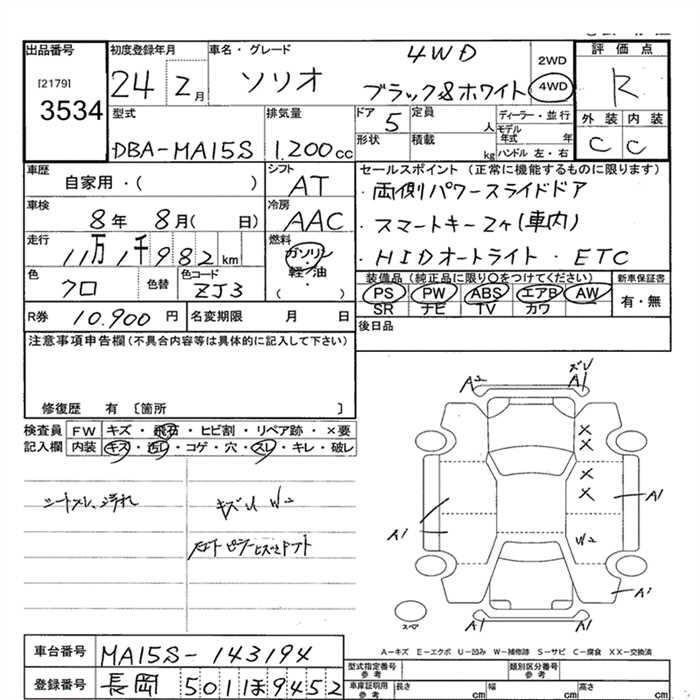 出品番号
[2179]
3534
初度登録年月
24 2月
車名・グレード
ソリオ
4WD
ブラック&ホワイト
2WD
4WD
評価点
R
外装 内装
C C
型式
DBA-MA15S
排気量
1.200cc
ドア
5
定員
人
形状
積載
kg
ディーラー・並行
モデル年式 年
ハンドル 左・右
車歴
自家用・( )
シフト
AT
セールスポイント(正常に機能するものに限ります)
・両側パワースライドドア
・スマートキー2ヶ(車内)
・HIDオートライト・ETC
車検
8年 8月( 日)
冷房
AAC
走行
11万1千982km
燃料
ガソリン
軽油
( )
色
クロ
色替
色コード
ZJ3
装備品(純正品に限り○をつけてください)
PS PW ABS エアB AW
SR ナビ TV カワ
新車保証書
有・無
R券 10.900円
名変期限 月 日
後日品
注意事項申告欄(不具合内容等は具体的に記入して下さい)
修復歴 有〔箇所 〕
検査員記入欄
FW キズ・飛石・ヒビ割・リペア跡・×要
内装 キズ・汚レ・コゲ・穴・スレ・キレ・破レ
シートスレ、汚れ
キズU W2
A2
ズレ
A1
×
×
×
×
A1
A1
W2
A1
A1
A1
スペア
A-キズ E-エクボ U-凹み W-補修跡 S-サビ C-腐食 XX-交換済
車台番号
MA15S-143194
登録番号
長岡 501 ほ 9452
型式指定番号 参考
類別区分番号 参考
車庫証明用 参考
長さ cm
幅 cm
高さ cm